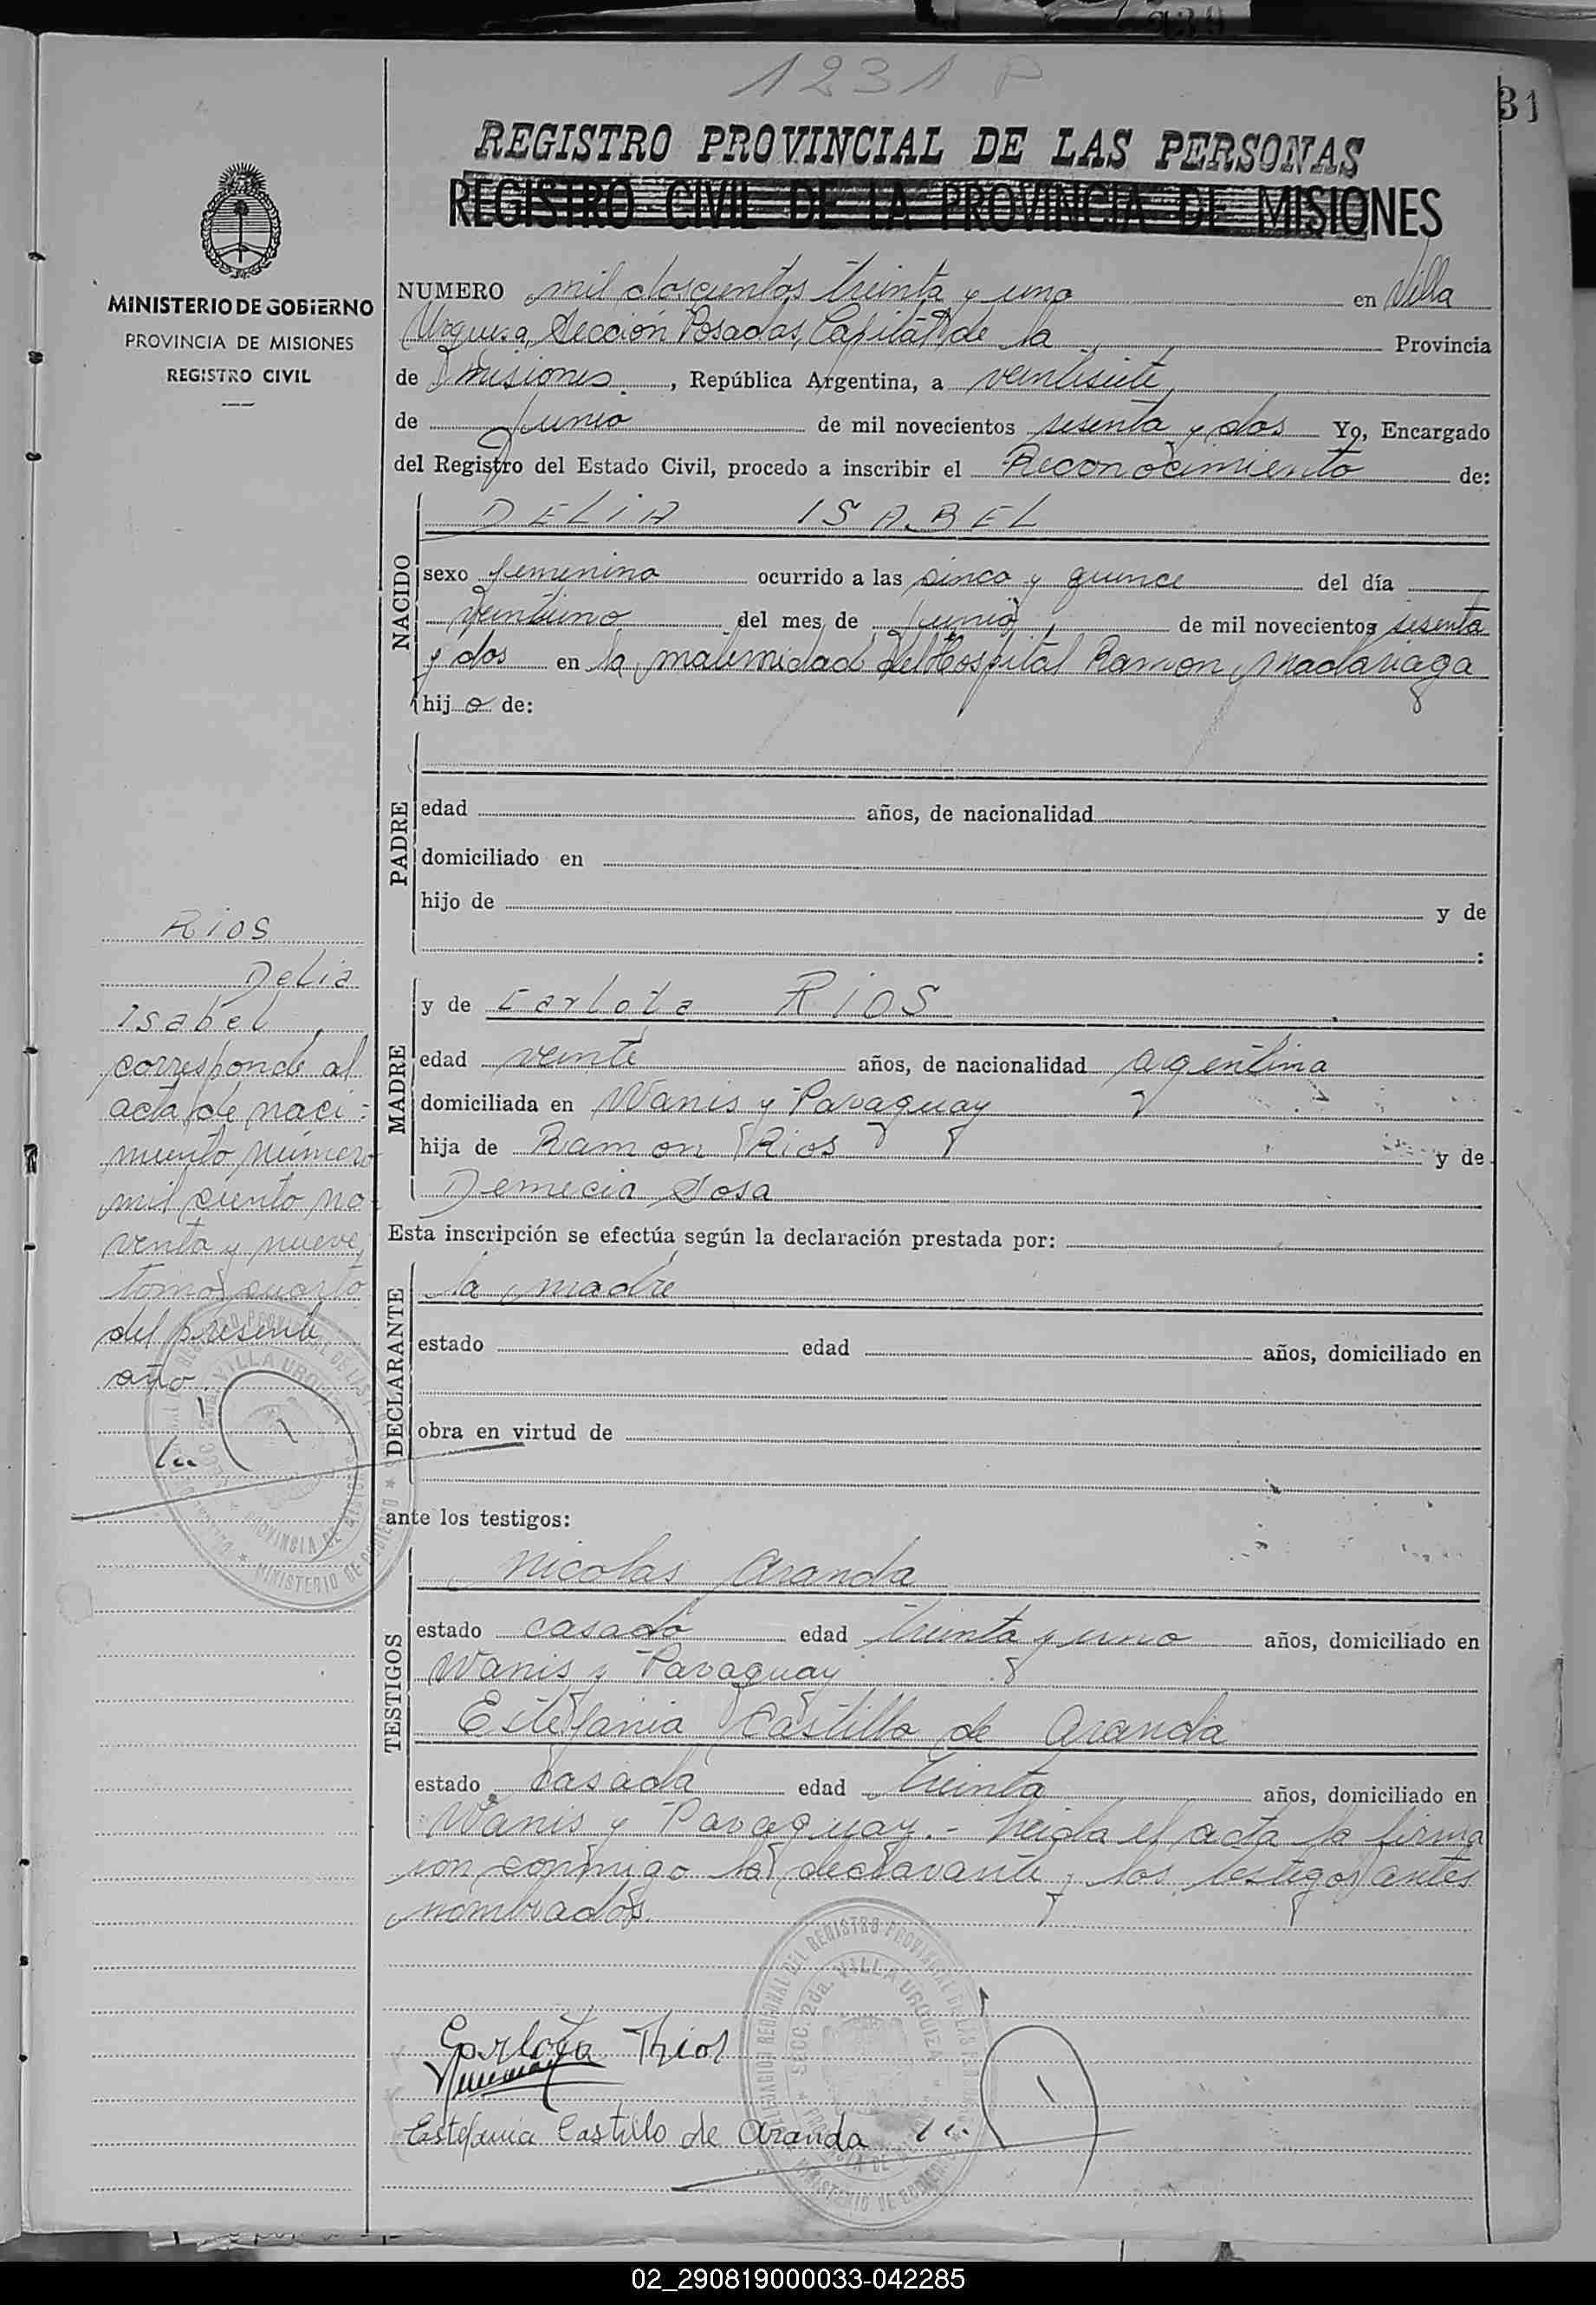 1231 P
31
REGISTRO PROVINCIAL DE LAS PERSONAS
REGISTRO CIVIL DE LA PROVINCIA DE MISIONES
MINISTERIO DE GOBIERNO
PROVINCIA DE MISIONES
REGISTRO CIVIL
NUMERO mil doscientos treinta y uno en Villa
Urquiza, Sección Posadas, Capital de la Provincia
de Misiones, República Argentina, a veintisiete
de Junio de mil novecientos sesenta y dos Yo, Encargado
del Registro del Estado Civil, procedo a inscribir el Reconocimiento de:
NACIDO
DELIA ISABEL
sexo femenino ocurrido a las sinco y quince del día
veintiuno del mes de junio, de mil novecientos sesenta
y dos en la maternidad del Hospital Ramon Madariaga
hij a de:
PADRE
edad años, de nacionalidad
domiciliado en
hijo de y de
:
MADRE
y de Carlota RIOS
edad veinte años, de nacionalidad argentina
domiciliada en Wanis y Paraguay
hija de Ramon Rios y de
Demecia Sosa
Esta inscripción se efectúa según la declaración prestada por:
DECLARANTE
la madre
estado edad años, domiciliado en
obra en virtud de
ante los testigos:
TESTIGOS
Nicolas Aranda
estado casado edad treinta y uno años, domiciliado en
Wanis y Paraguay
Estefania Castillo de Aranda
estado casada edad treinta años, domiciliado en
Wanis y Paraguay.- Leida el acta la firma
ron conmigo la declarante y los testigos antes
nombrados.
RIOS
Delia
Isabel,
corresponde al
acta de naci=
miento número
mil ciento no
venta y nueve,
tomo cuarto
del presente
año.
Carlota Rios
Estefania Castillo de Aranda
DELEGACION REGIONAL DEL REGISTRO PROVINCIAL DE LAS PERSONAS
SECC. 2da. VILLA URQUIZA
PROVINCIA DE MISIONES
MINISTERIO DE GOBIERNO
02_290819000033-042285